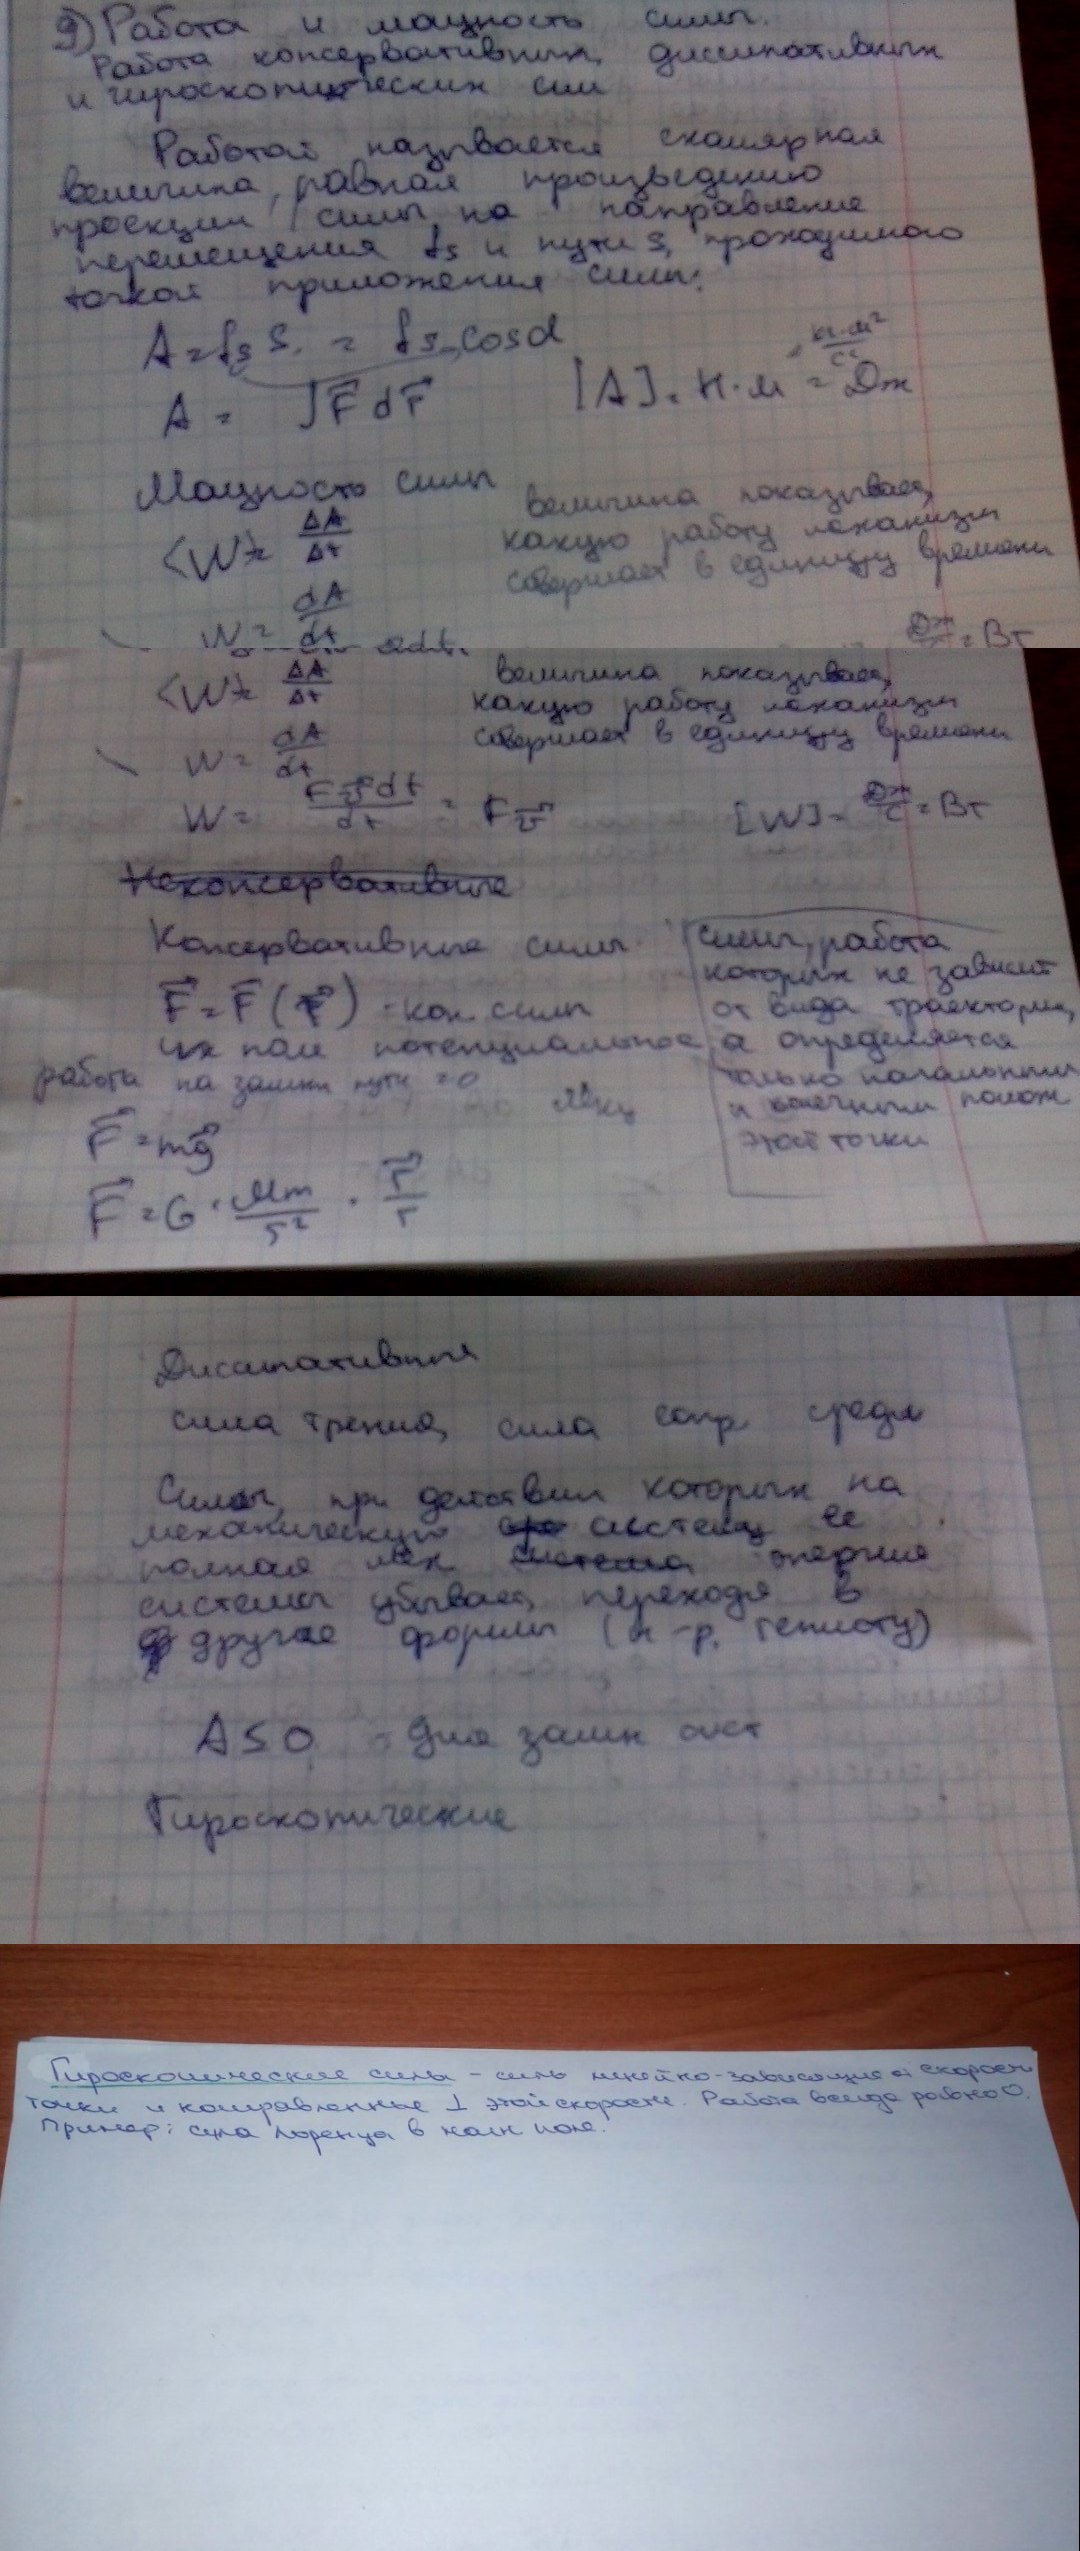 9) Работа и мощность силы.
Работа консервативных, диссипативных
и гироскопических сил
Работой называется скалярная
величина, равная произведению
проекции силы на направление
перемещения fs и пути s, проходимого
точкой приложения силы:
A = fs S. = fs cosα
[A] = Н·м = кг·м²/с² = Дж
A = ∫F⃗ dr⃗
Мощность силы
<W> = ΔA/Δt
величина показывает,
какую работу механизм
совершает в единицу времени
W = dA/dt
Дж/с = Вт
<W> = ΔA/Δt
величина показывает,
какую работу механизм
совершает в единицу времени
W = dA/dt
W = Fv⃗dt/dt = Fv⃗
[W] = Дж/с = Вт
Неконсервативные
Консервативные силы
F⃗ = F⃗(r⃗) - кон. силы
их поле потенциальное
работа на замкн пути = 0
силы, работа
которых не зависит
от вида траектории,
а определяется
только начальным
и конечным полож
этой точки
F⃗ = mg⃗
F⃗ = G · Mm/r² · r⃗/r
Диссипативные
сила трения, сила сопр. среды
Силы, при действии которых на
механическую систему её
полная мех система энергия
системы убывает, переходя в
другие формы (н-р, теплоту)
A ≤ 0 - для замкн сист
Гироскопические
Гироскопические силы - силы линейно-зависящие от скорости
точки и направленные ⊥ этой скорости. Работа всегда равно 0.
Пример: сила Лоренца в магн поле.